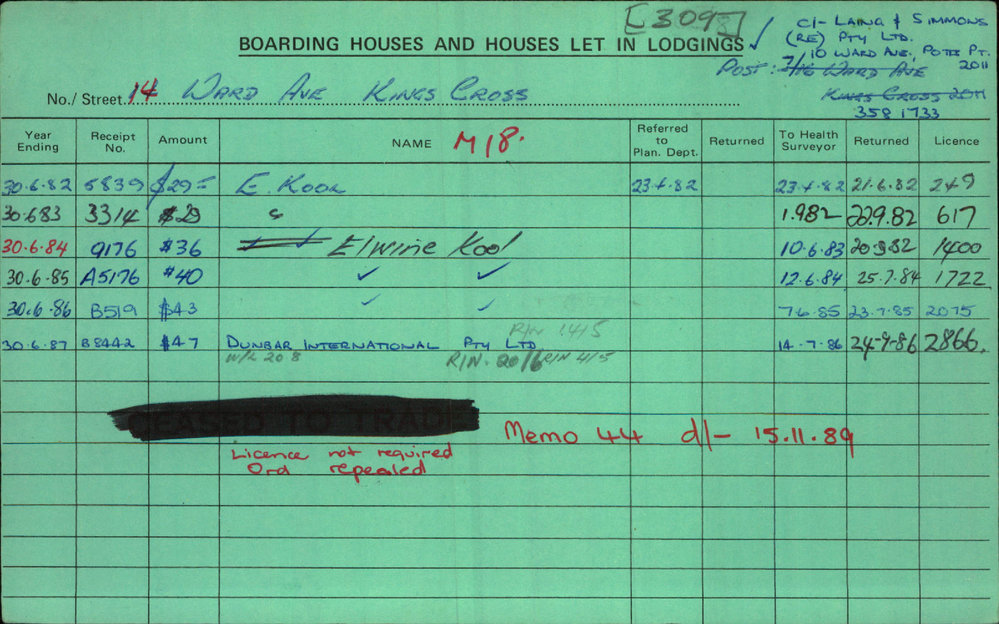 [309]
C/- LAING & SIMMONS
(RE) PTY LTD.
BOARDING HOUSES AND HOUSES LET IN LODGINGS ✓
10 WARD AVE, POTTS PT.
2011
POST: 7/16 WARD AVE
KINGS CROSS 2011
358 1733
No./ Street. 14 WARD AVE KINGS CROSS
Year Ending Receipt No. Amount NAME M18. Referred to Plan. Dept. Returned To Health Surveyor Returned Licence
30.6.82 5839 $29= E. KOOL 23.4.82 23.4.82 21.6.82 249
30.6.83 3314 $29 " 1.9.82 22.9.82 617
30.6.84 9176 $36 Elwine Kool 10.6.83 20.9.82 1400
30.6.85 A5176 $40 ✓ ✓ 12.6.84 25.7.84 1722
30.6.86 B519 $43 ✓ ✓ 7.6.85 23.7.85 2075
R/N 14/5
30.6.87 B8442 $47 DUNBAR INTERNATIONAL PTY LTD. 14.7.86 24-9-86 2866.
W/R 20 8 R/N. 20/6 R/N 4/5
CEASED TO TRADE
Memo 44 d/- 15.11.89
Licence not required
Ord repealed